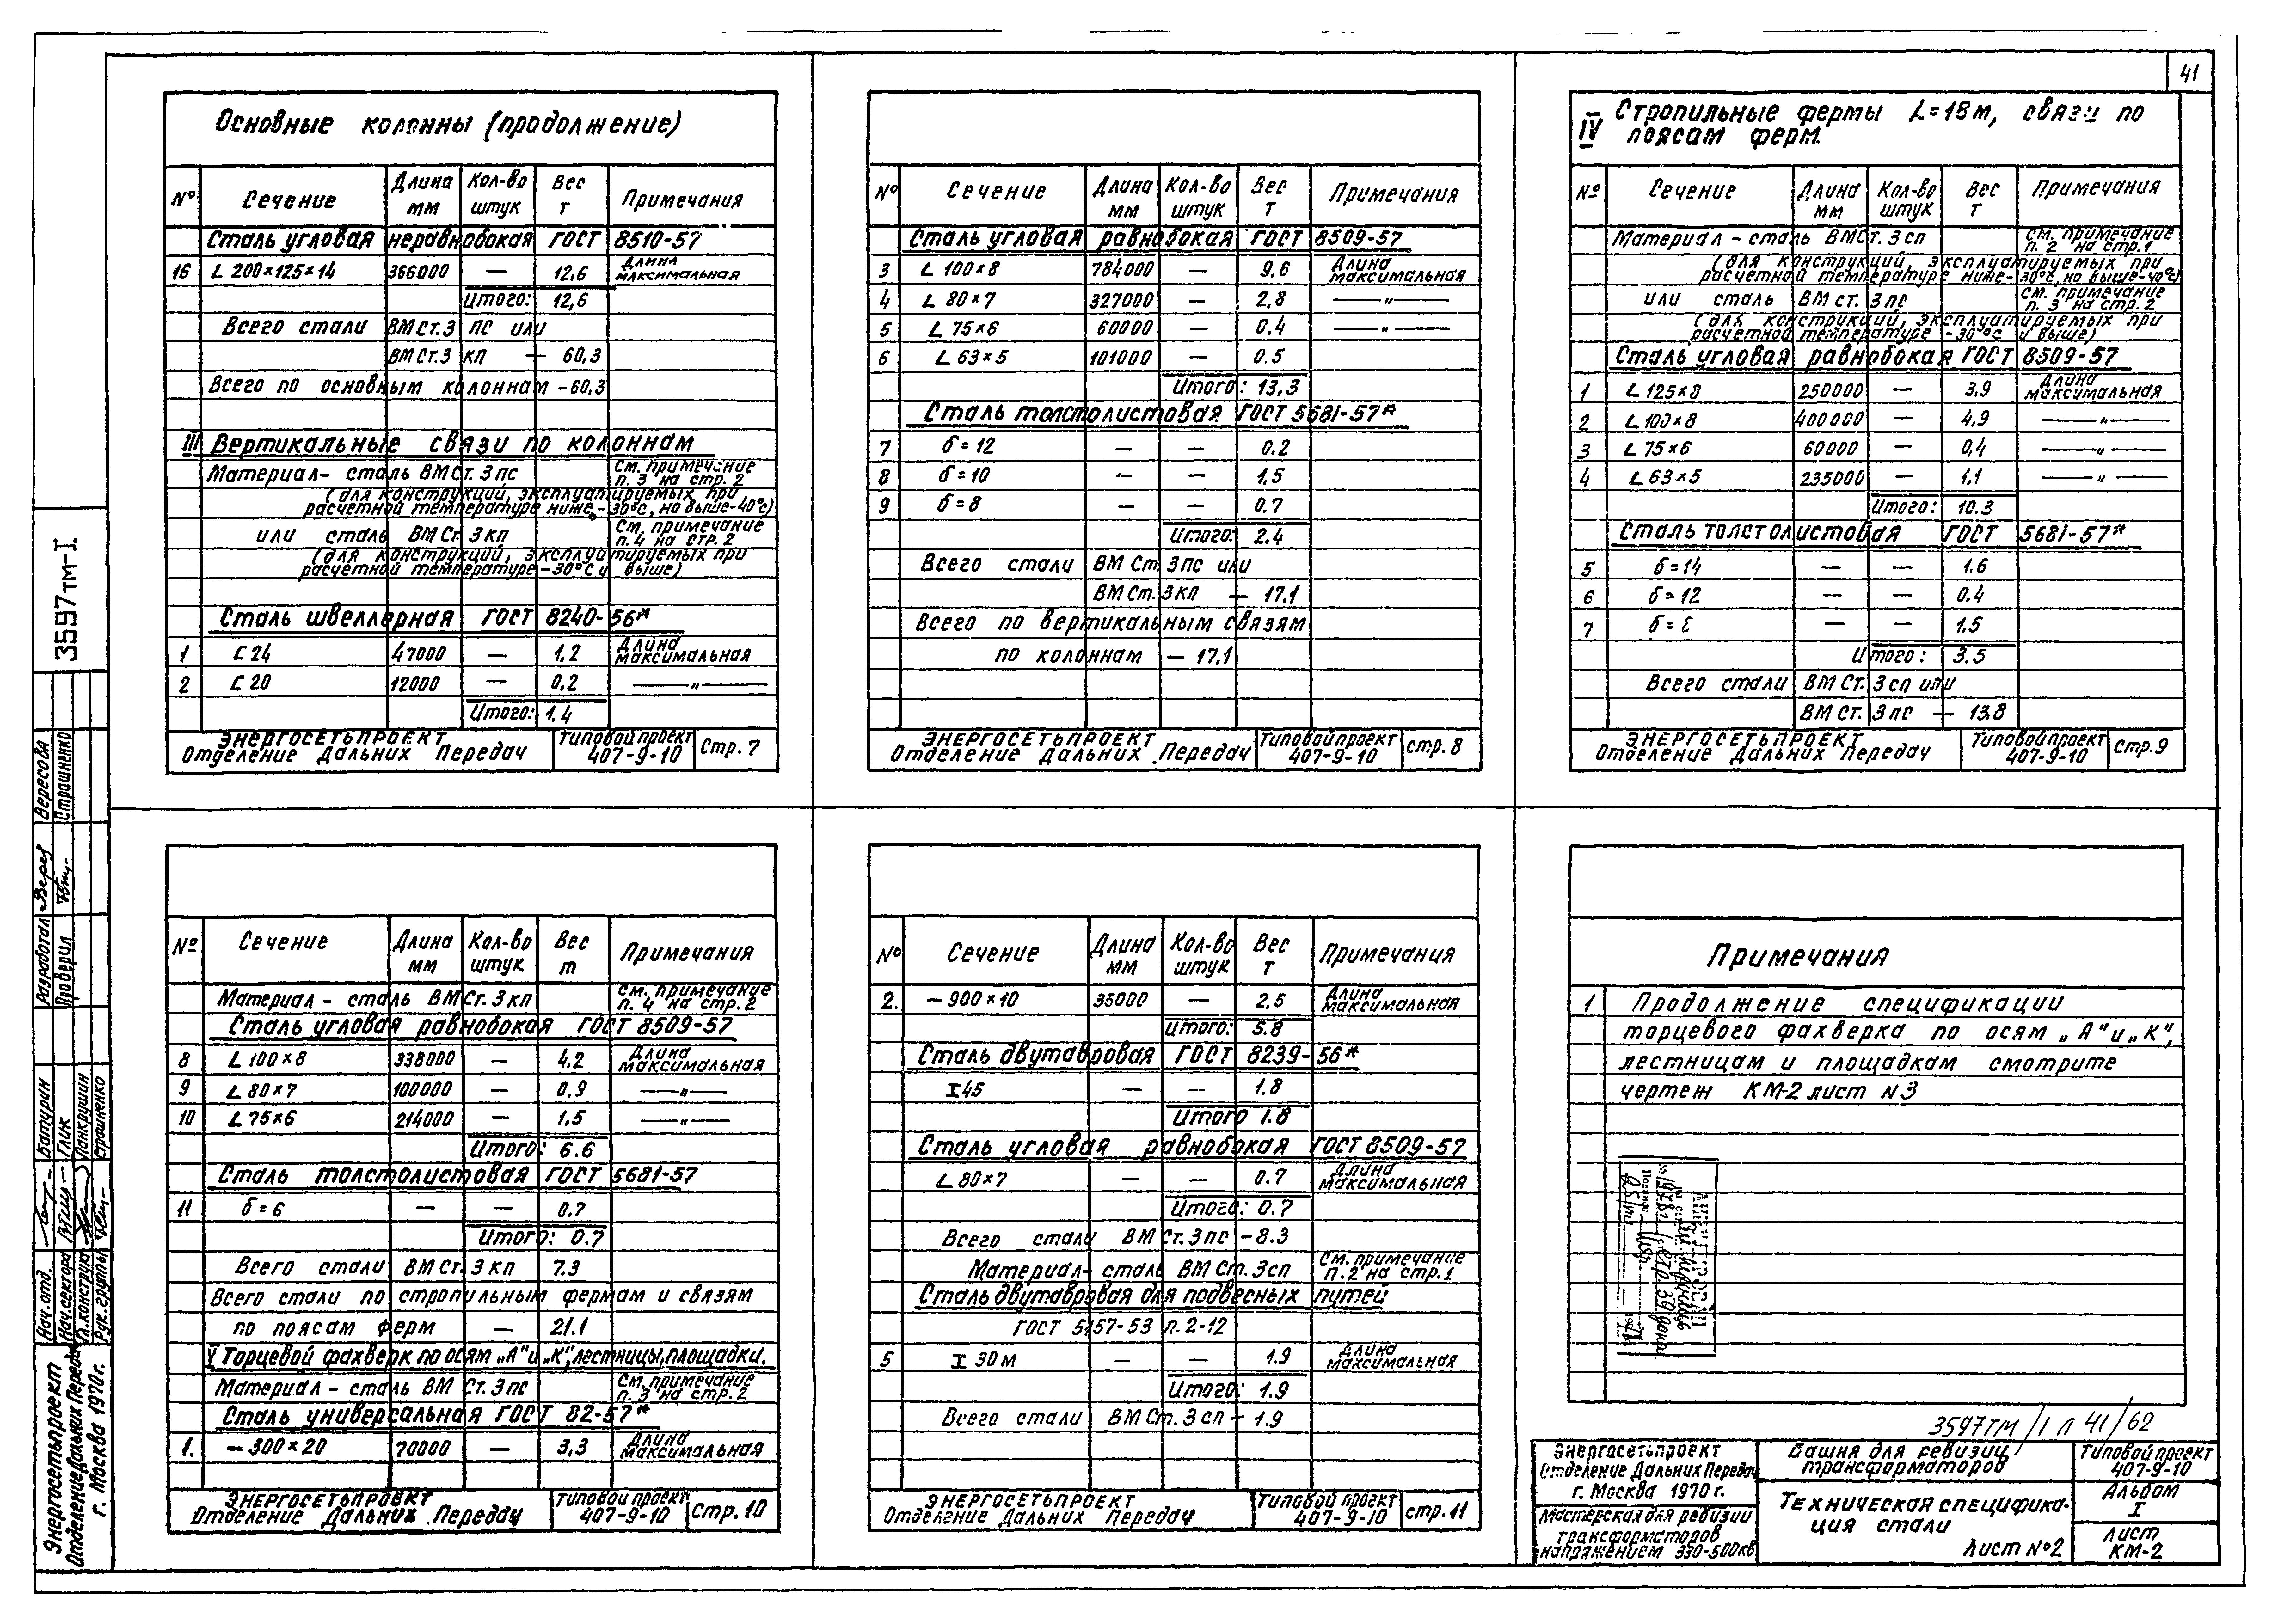 41
Основные колонны (продолжение)
№ Сечение Длина мм Кол-во штук Вес т Примечания
Сталь угловая неравнобокая ГОСТ 8510-57
16 L 200×125×14 366000 — 12,6 Длина максимальная
Итого: 12,6
Всего стали ВМСт.3 пс или
ВМСт.3 кп — 60,3
Всего по основным колоннам - 60,3
III Вертикальные связи по колоннам
Материал - сталь ВМСт.3пс См. примечание п. 3 на стр. 2
(для конструкций, эксплуатируемых при
расчетной температуре ниже -30°с, но выше -40°с)
или сталь ВМСт.3кп См. примечание п.4 на стр. 2
(для конструкций, эксплуатируемых при
расчетной температуре -30°с и выше)
Сталь швеллерная ГОСТ 8240-56*
1 С 24 47000 — 1,2 Длина максимальная
2 С 20 12000 — 0.2 —"—
Итого: 1,4
ЭНЕРГОСЕТЬПРОЕКТ
Отделение Дальних Передач
Типовой проект 407-9-10
Стр. 7
№ Сечение Длина мм Кол-во штук Вес т Примечания
Сталь угловая равнобокая ГОСТ 8509-57
3 L 100×8 784000 — 9,6 Длина максимальная
4 L 80×7 327000 — 2,8 —"—
5 L 75×6 60000 — 0.4 —"—
6 L 63×5 101000 — 0.5
Итого: 13,3
Сталь толстолистовая ГОСТ 5681-57*
7 б=12 — — 0.2
8 б=10 — — 1,5
9 б=8 — — 0.7
Итого: 2.4
Всего стали ВМСт.3пс или
ВМСт.3кп — 17.1
Всего по вертикальным связям
по колоннам — 17.1
ЭНЕРГОСЕТЬПРОЕКТ
Отделение Дальних Передач
Типовой проект 407-9-10
стр. 8
IV Стропильные фермы L=18м, связи по
поясам ферм.
№ Сечение Длина мм Кол-во штук Вес т Примечания
Материал - сталь ВМСт.3сп См. примечание п. 2 на стр.1
(для конструкций эксплуатируемых при
расчетной температуре ниже -30°с, но выше -40°с)
или сталь ВМст.3пс См. примечание п. 3 на стр.2
(для конструкций, эксплуатируемых при
расчетной температуре -30°с и выше)
Сталь угловая равнобокая ГОСТ 8509-57
1 L 125×8 250000 — 3.9 Длина максимальная
2 L 100×8 400000 — 4,9 —"—
3 L 75×6 60000 — 0,4 —"—
4 L 63×5 235000 — 1,1 —"—
Итого: 10.3
Сталь толстолистовая ГОСТ 5681-57*
5 б=14 — — 1.6
6 б=12 — — 0.4
7 б= — — 1.5
Итого: 3.5
Всего стали ВМСт.3сп или
ВМСт.3пс — 13.8
ЭНЕРГОСЕТЬПРОЕКТ
Отделение Дальних Передач
Типовой проект 407-9-10
стр.9
№ Сечение Длина мм Кол-во штук Вес т Примечания
Материал - сталь ВМСт.3кп См. примечание п. 4 на стр. 2
Сталь угловая равнобокая ГОСТ 8509-57
8 L 100×8 338000 — 4,2 Длина максимальная
9 L 80×7 100000 — 0,9 —"—
10 L 75×6 214000 — 1,5 —"—
Итого: 6.6
Сталь толстолистовая ГОСТ 5681-57
11 б=6 — — 0.7
Итого: 0.7
Всего стали ВМСт.3кп 7.3
Всего стали по стропильным фермам и связям
по поясам ферм — 21.1
V Торцевой фахверк по осям „А" и „К", лестницы, площадки.
Материал - сталь ВМСт.3пс См. примечание п. 3 на стр. 2
Сталь универсальная ГОСТ 82-57*
1. — 300×20 70000 — 3,3 Длина максимальная
ЭНЕРГОСЕТЬПРОЕКТ
Отделение Дальних Передач
Типовой проект 407-9-10
Стр. 10
№ Сечение Длина мм Кол-во штук Вес т Примечания
2. — 900×10 35000 — 2,5 Длина максимальная
Итого: 5.8
Сталь двутавровая ГОСТ 8239-56*
I 45 — — 1.8
Итого 1.8
Сталь угловая равнобокая ГОСТ 8509-57
L 80×7 — — 0.7 Длина максимальная
Итого: 0.7
Всего стали ВМСт.3пс - 8.3
Материал - сталь ВМСт.3сп См. примечание п.2 на стр.1
Сталь двутавровая для подвесных путей
ГОСТ 5157-53 п. 2-12
5 I 30м — — 1.9 Длина максимальная
Итого: 1.9
Всего стали ВМСт.3сп - 1.9
ЭНЕРГОСЕТЬПРОЕКТ
Отделение Дальних Передач
Типовой проект 407-9-10
стр. 11
Примечания
1 Продолжение спецификации
торцевого фахверка по осям „А" и „К",
лестницам и площадкам смотрите
чертеж КМ-2 лист N3
3597ТМ/1 л 41/62
Энергосетьпроект
Отделение Дальних Передач
г. Москва 1970 г.
Мастерская для ревизии
трансформаторов
напряжением 330-500кв
Башня для ревизии
трансформаторов
Техническая специфика-
ция стали
Лист №2
Типовой проект
407-9-10
Альбом
I
Лист
КМ-2
3597тм-I
Разработал Вересова
Проверил Страшненко
Нач. отд. Батурин
Нач. сектора Глик
Гл. конструкт. Панкрушин
Рук. группы Страшненко
Энергосетьпроект
Отделение Дальних Передач
г. Москва 1970 г.